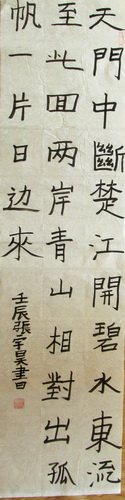 天門中斷楚江開碧水東流
至此回两岸青山相對出孤
帆一片日边來
壬辰張宇昊書